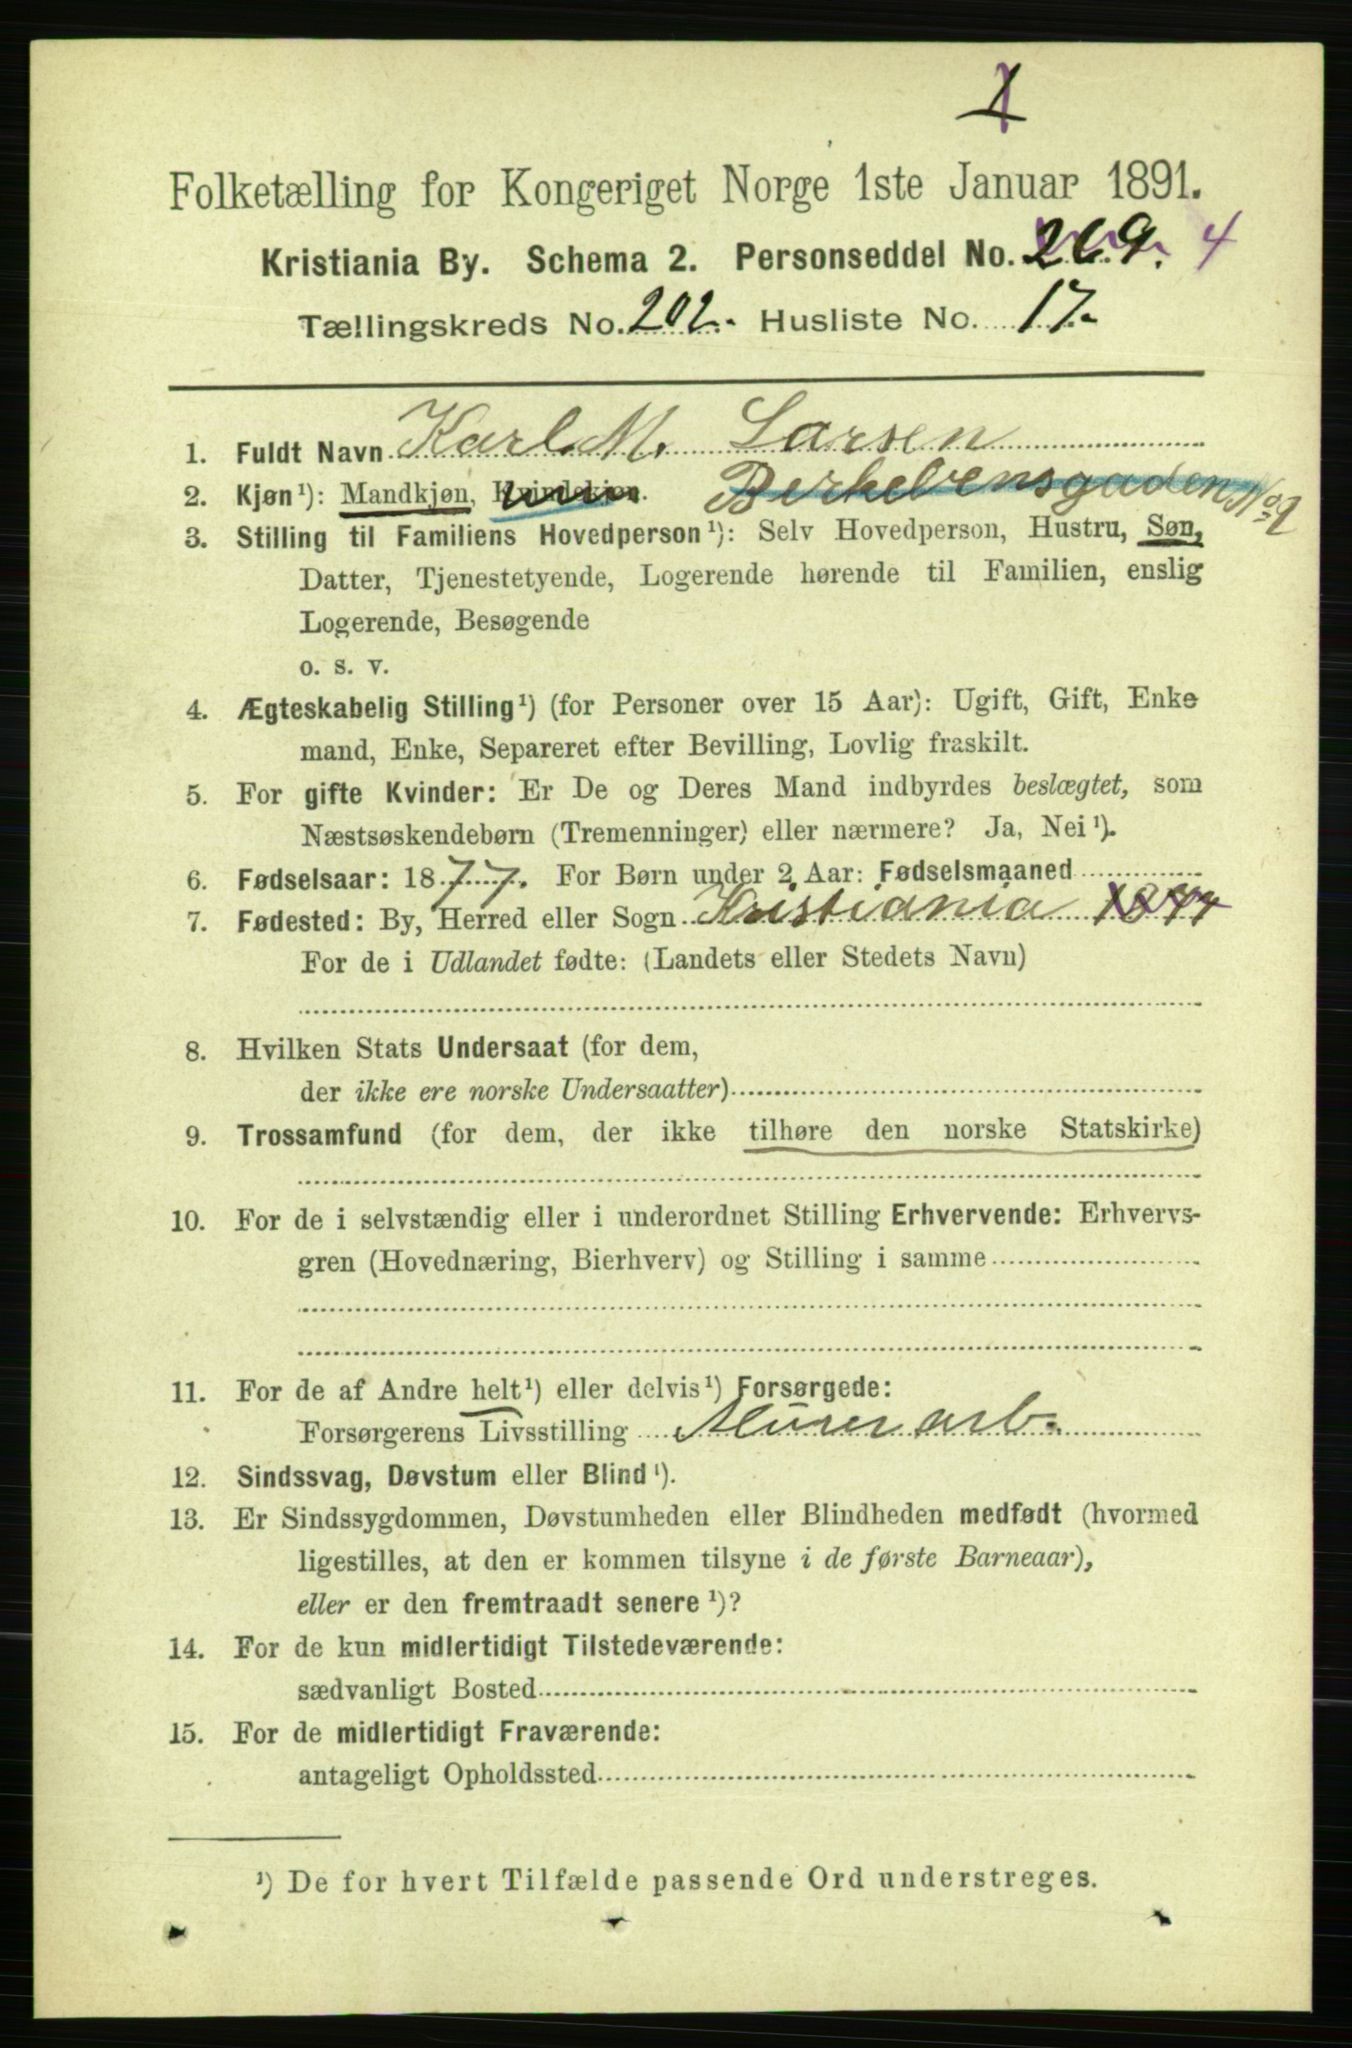 Folketælling for Kongeriget Norge 1ste Januar 1891.
Kristiania By. Schema 2. Personseddel No. 269. 4
Tællingskreds No. 202. Husliste No. 17.
1. Fuldt Navn Karl M. Larsen
2. Kjøn¹): Mandkjøn, Kvindekjøn. Birkebensgaden No 9
3. Stilling til Familiens Hovedperson¹): Selv Hovedperson, Hustru, Søn,
Datter, Tjenestetyende, Logerende hørende til Familien, enslig
Logerende, Besøgende
o. s. v.
4. Ægteskabelig Stilling¹) (for Personer over 15 Aar): Ugift, Gift, Enke
mand, Enke, Separeret efter Bevilling, Lovlig fraskilt.
5. For gifte Kvinder: Er De og Deres Mand indbyrdes beslægtet, som
Næstsøskendebørn (Tremenninger) eller nærmere? Ja, Nei¹).
6. Fødselsaar: 1877. For Børn under 2 Aar: Fødselsmaaned
7. Fødested: By, Herred eller Sogn Kristiania 1877
For de i Udlandet fødte: (Landets eller Stedets Navn)
8. Hvilken Stats Undersaat (for dem,
der ikke ere norske Undersaatter)
9. Trossamfund (for dem, der ikke tilhøre den norske Statskirke)
10. For de i selvstændig eller i underordnet Stilling Erhvervende: Erhvervs-
gren (Hovednæring, Bierhverv) og Stilling i samme
11. For de af Andre helt¹) eller delvis¹) Forsørgede:
Forsørgerens Livsstilling Murerarb.
12. Sindssvag, Døvstum eller Blind¹).
13. Er Sindssygdommen, Døvstumheden eller Blindheden medfødt (hvormed
ligestilles, at den er kommen tilsyne i de første Barneaar),
eller er den fremtraadt senere¹)?
14. For de kun midlertidigt Tilstedeværende:
sædvanligt Bosted
15. For de midlertidigt Fraværende:
antageligt Opholdssted
¹) De for hvert Tilfælde passende Ord understreges.